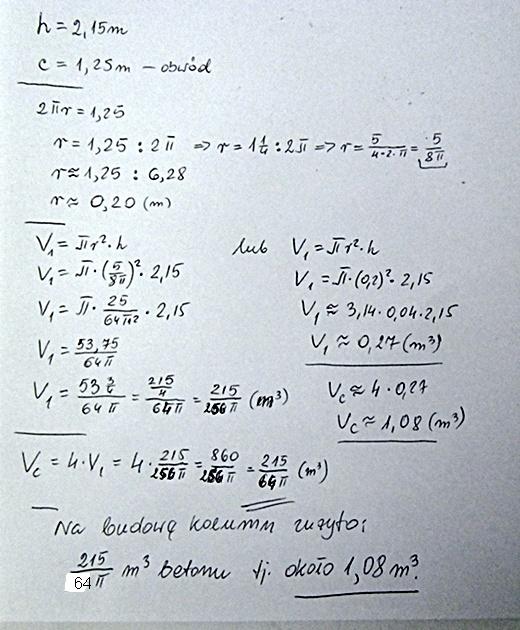 h = 2,15m
c = 1,25m – obwód
2πr = 1,25
r = 1,25 : 2π => r = 1 1/4 : 2π => r = 5/(4·2·π) = 5/(8π)
r ≈ 1,25 : 6,28
r ≈ 0,20 (m)
V₁ = πr²·h
V₁ = π·(5/(8π))²·2,15
V₁ = π·25/(64π²)·2,15
V₁ = 53,75/(64π)
V₁ = 53 3/4/(64π) = (215/4)/(64π) = 215/(256π) (m³)
lub V₁ = πr²·h
V₁ = π·(0,2)²·2,15
V₁ ≈ 3,14·0,04·2,15
V₁ ≈ 0,27 (m³)
Vc ≈ 4·0,27
Vc ≈ 1,08 (m³)
Vc = 4·V₁ = 4·215/(256π) = 860/(256π) = 215/(64π) (m³)
Na budowę kolumn zużyto:
215/(64π) m³ betonu tj. około 1,08m³.